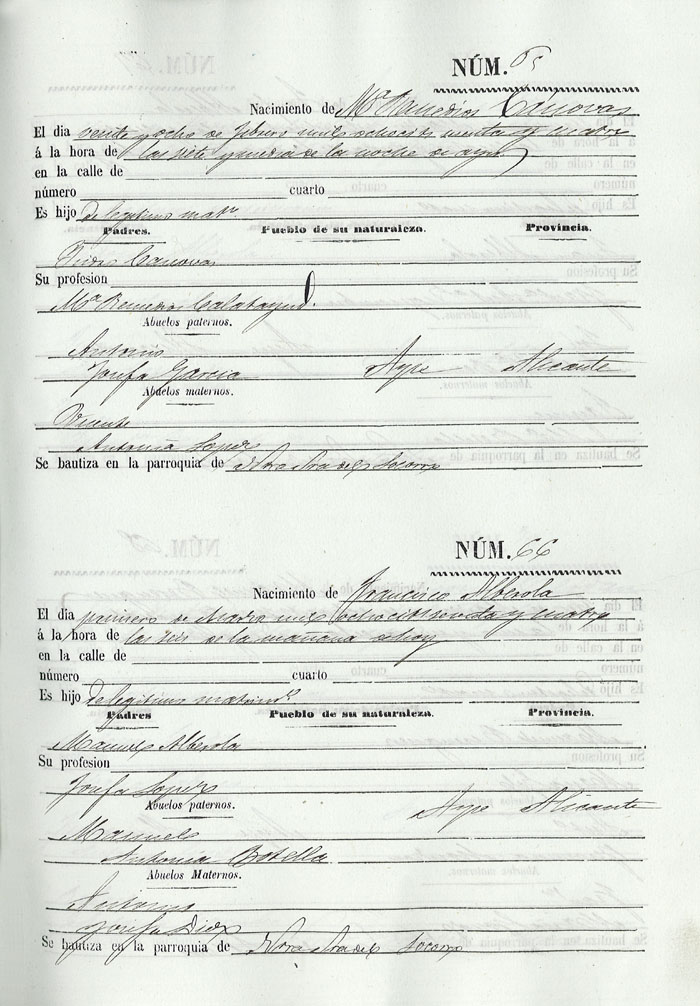 NÚM. 65
Nacimiento de Mª Remedios Canovas
El dia veinte y ocho de febrero mil ochoc.tos
á la hora de las siete y media de la noche de ayer
en la calle de
número cuarto
Es hijo de legitimo matº
Padres. Pueblo de su naturaleza. Provincia.
Canovas
Su profesion
Mª Remedios Calatayud.
Abuelos paternos.
Antonio
Josefa Garcia Aspe Alicante
Abuelos maternos.
Vicente
Antonia Lopez
Se bautiza en la parroquia de Ntra Sra del Socorro
NÚM. 66
Nacimiento de Francisco Alberola
El día primero de Marzo mil ochoc.tos y cuatro
á la hora de las de la mañana de hoy
en la calle de
número cuarto
Es hijo de legitimo matrimº
Padres Pueblo de su naturaleza. Provincia.
Manuel Alberola
Su profesion
Josefa Lopez
Abuelos paternos. Aspe Alicante
Manuel
Antonia Botella
Abuelos Maternos.
Antonio
Josefa Diez
Se bautiza en la parroquia de Ntra Sra del Socorro